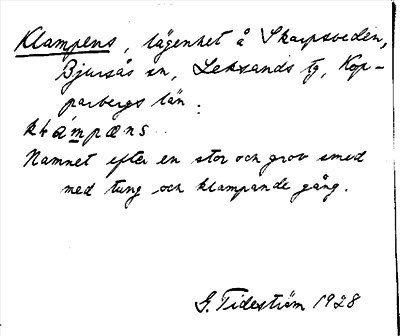 Klampens, lägenhet å Skarpsveden,
Bjursås sn, Leksands tg, Kop-
parbergs län:
klámpæns.
Namnet efter en stor och grov smed
med tung och klampande gång.
G. Tideström 1928